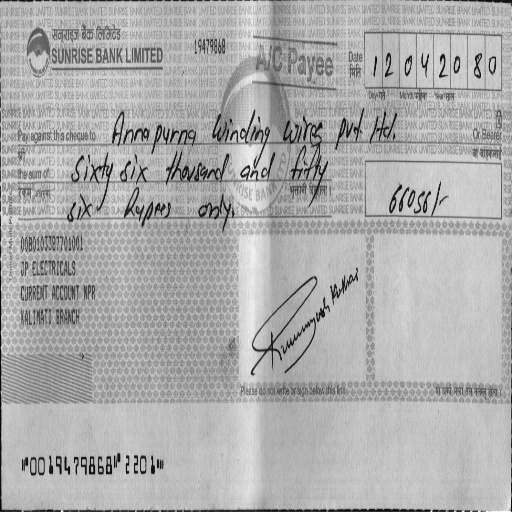 सनराइज बैंक लिमिटेड
SUNRISE BANK LIMITED
19479868
A/C Payee
Date
मिति
1 2 0 4 2 0 8 0
Pay against this cheque to Annapurna Winding Wires pvt ltd.
Or Bearer
the sum of Sixty six thousand and fifty
six Rupees only.
66056/-
0080103387701001
JP ELECTRICALS
CURRENT ACCOUNT NPR
KALIMATI BRANCH
Please do not write or sign below this line
⑈0019479868⑈ 2201⑈